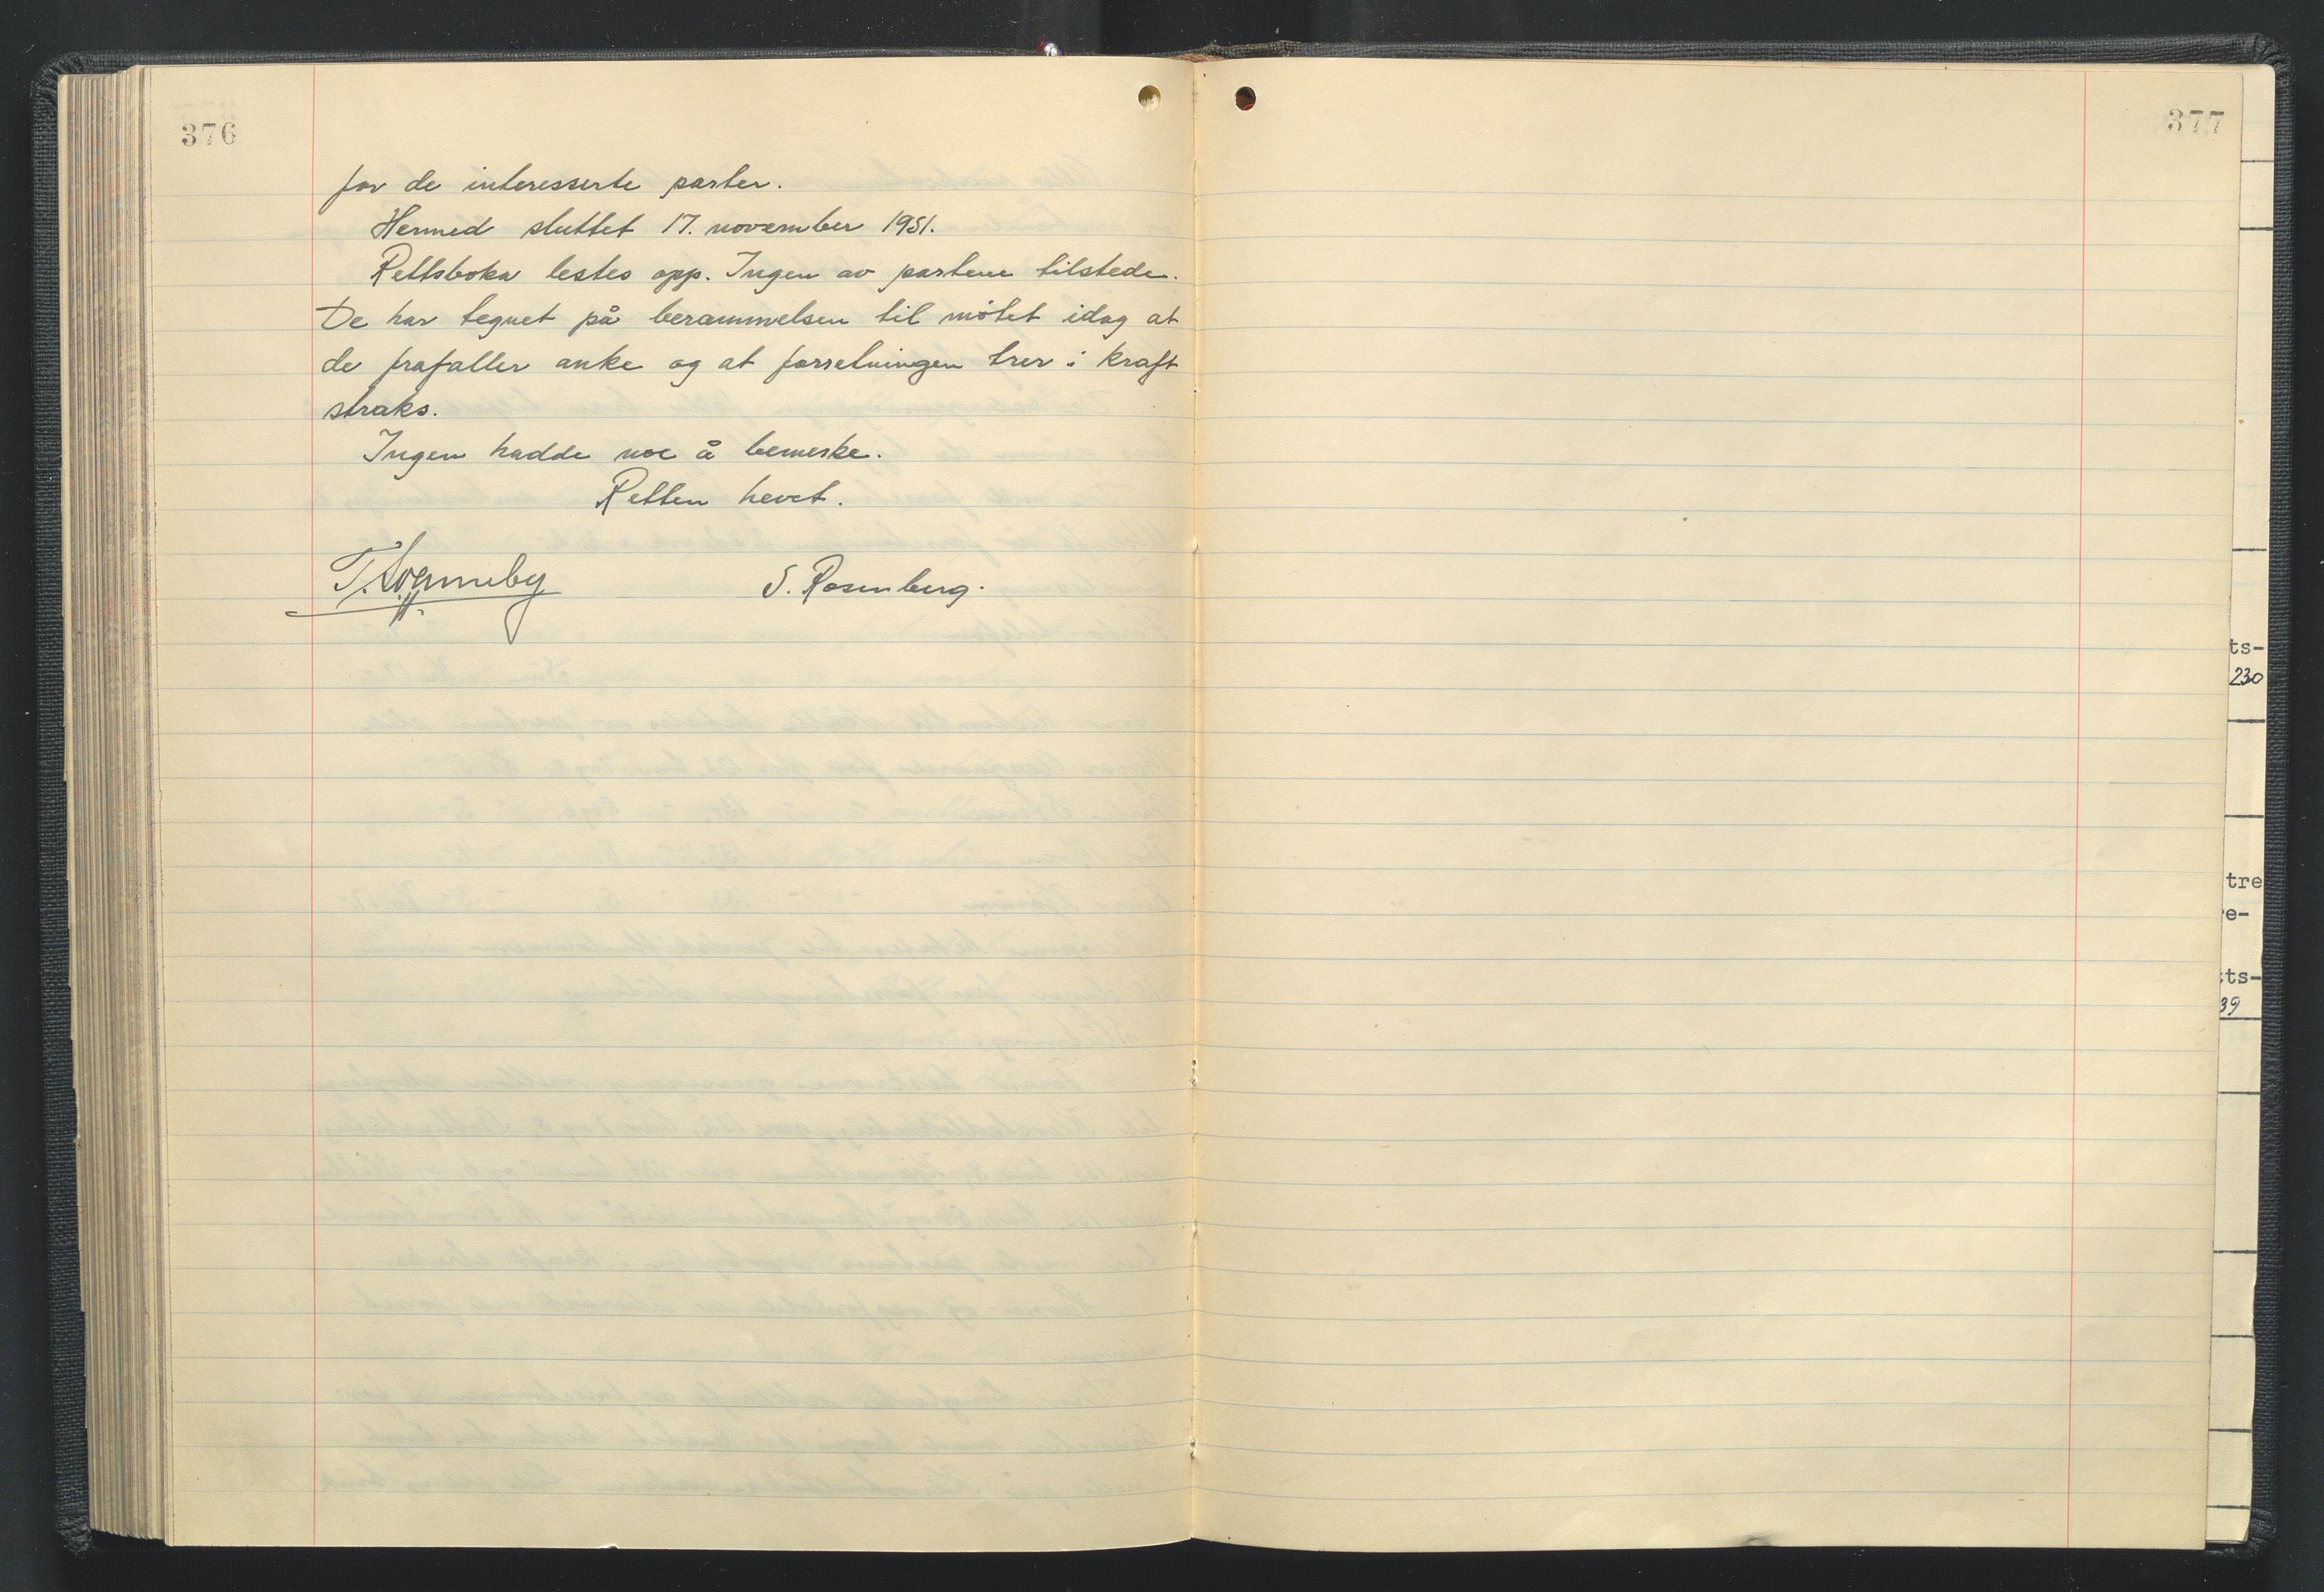 376
for de interesserte parter.
Hermed sluttet 17. november 1951.
Rettsboka lestes opp. Ingen av partene tilstede.
De har tegnet på berammelsen til møtet idag at
de frafaller anke og at forretningen trer i kraft
straks.
Ingen hadde noe å bemerke.
Retten hevet.
S. Rosenberg.
377
ts-
230
tre
e-
ts-
39